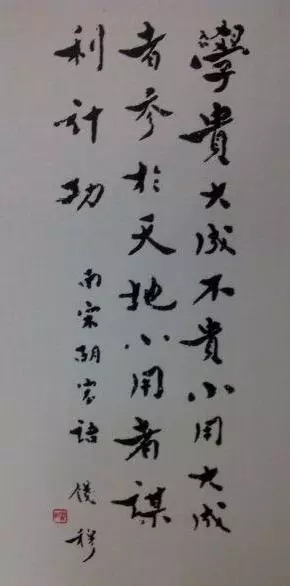 學貴大成不貴小用大成
者参於天地小用者謀
利計功
南宋胡宏語 錢穆